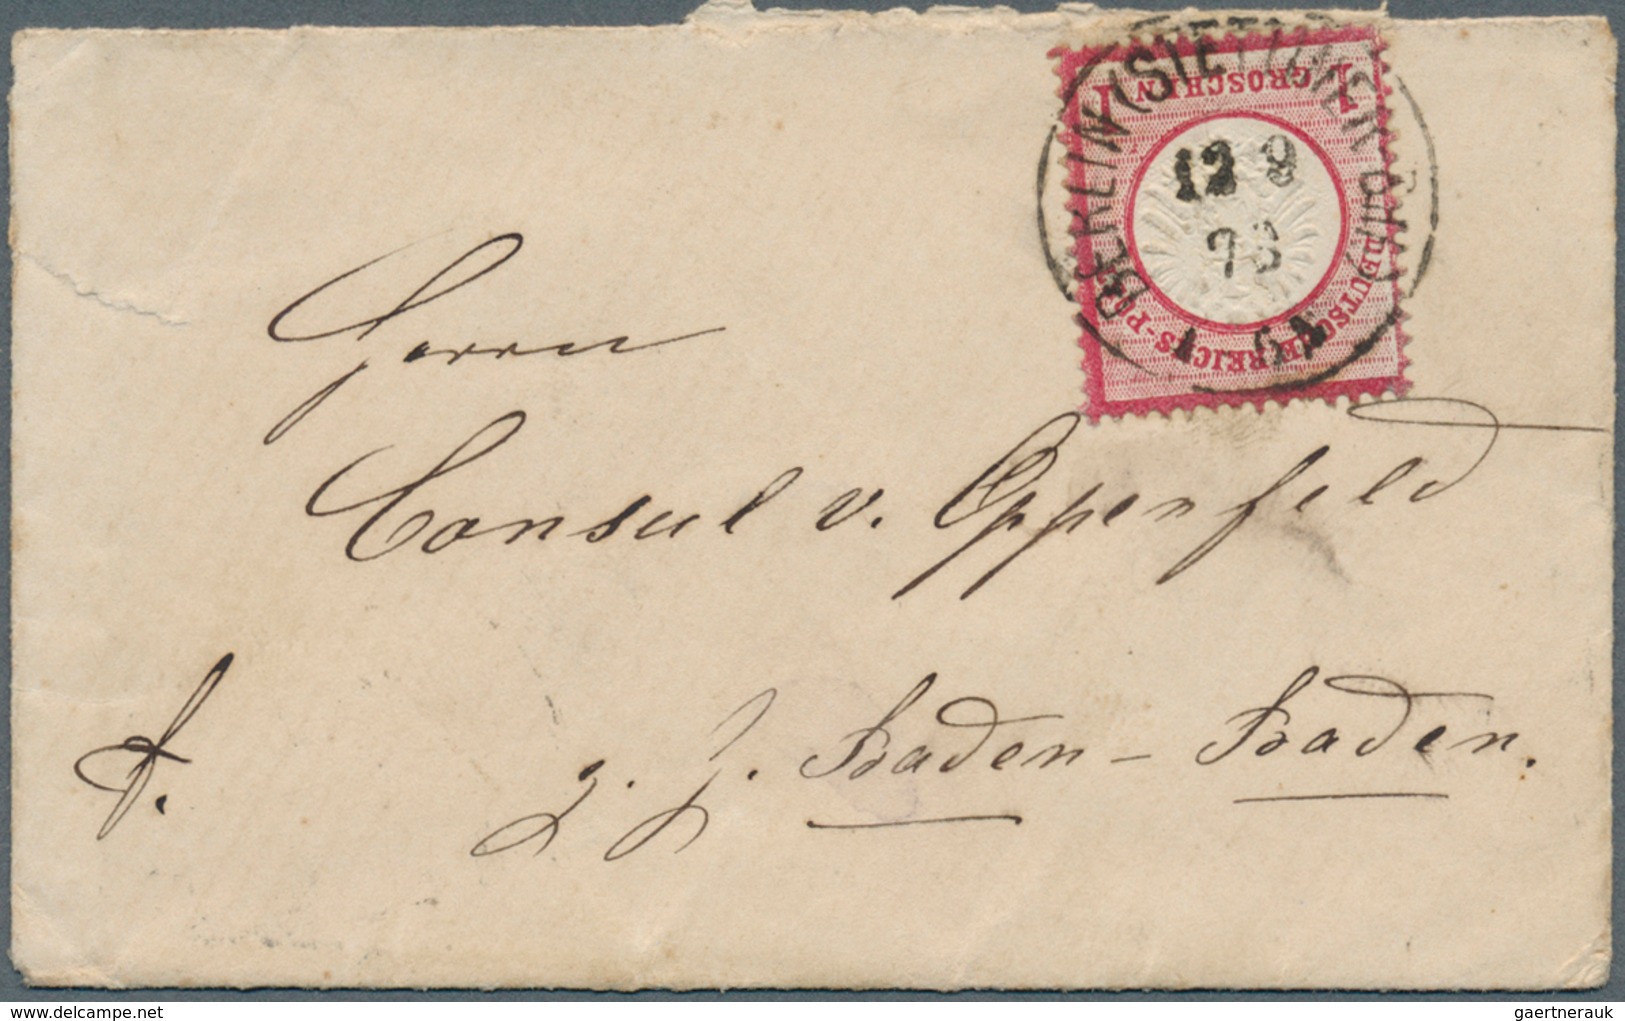 1 GROSCHEN 1
DEUTSCHE REICHS-P
BERLIN (STETTINER-BHF.)
12 9
73
Herrn
Consul v. Oppenfeld
fr.
z. Z. Baden-Baden.
delcampe.net
gaertnerauk